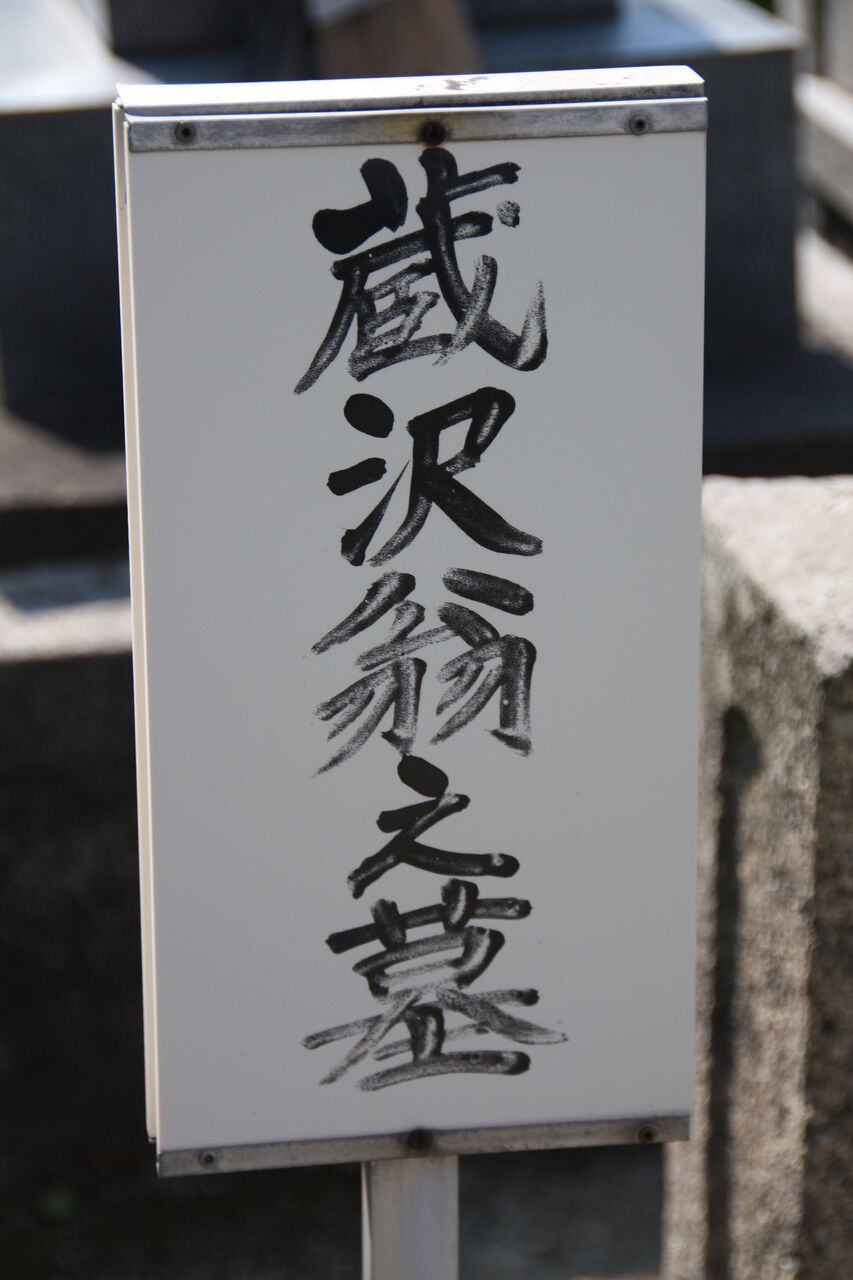 蔵沢翁之墓